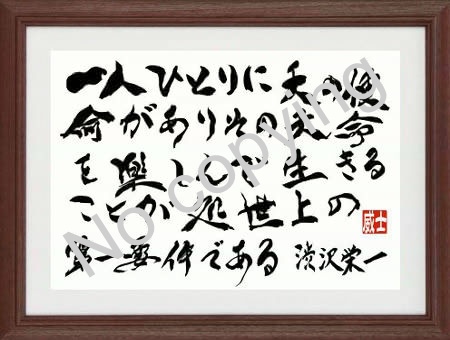 一人ひとりに天の使
命がありその天命
を楽しんで生きる
ことが処世上の
第一要件である 渋沢栄一
威士
No copying